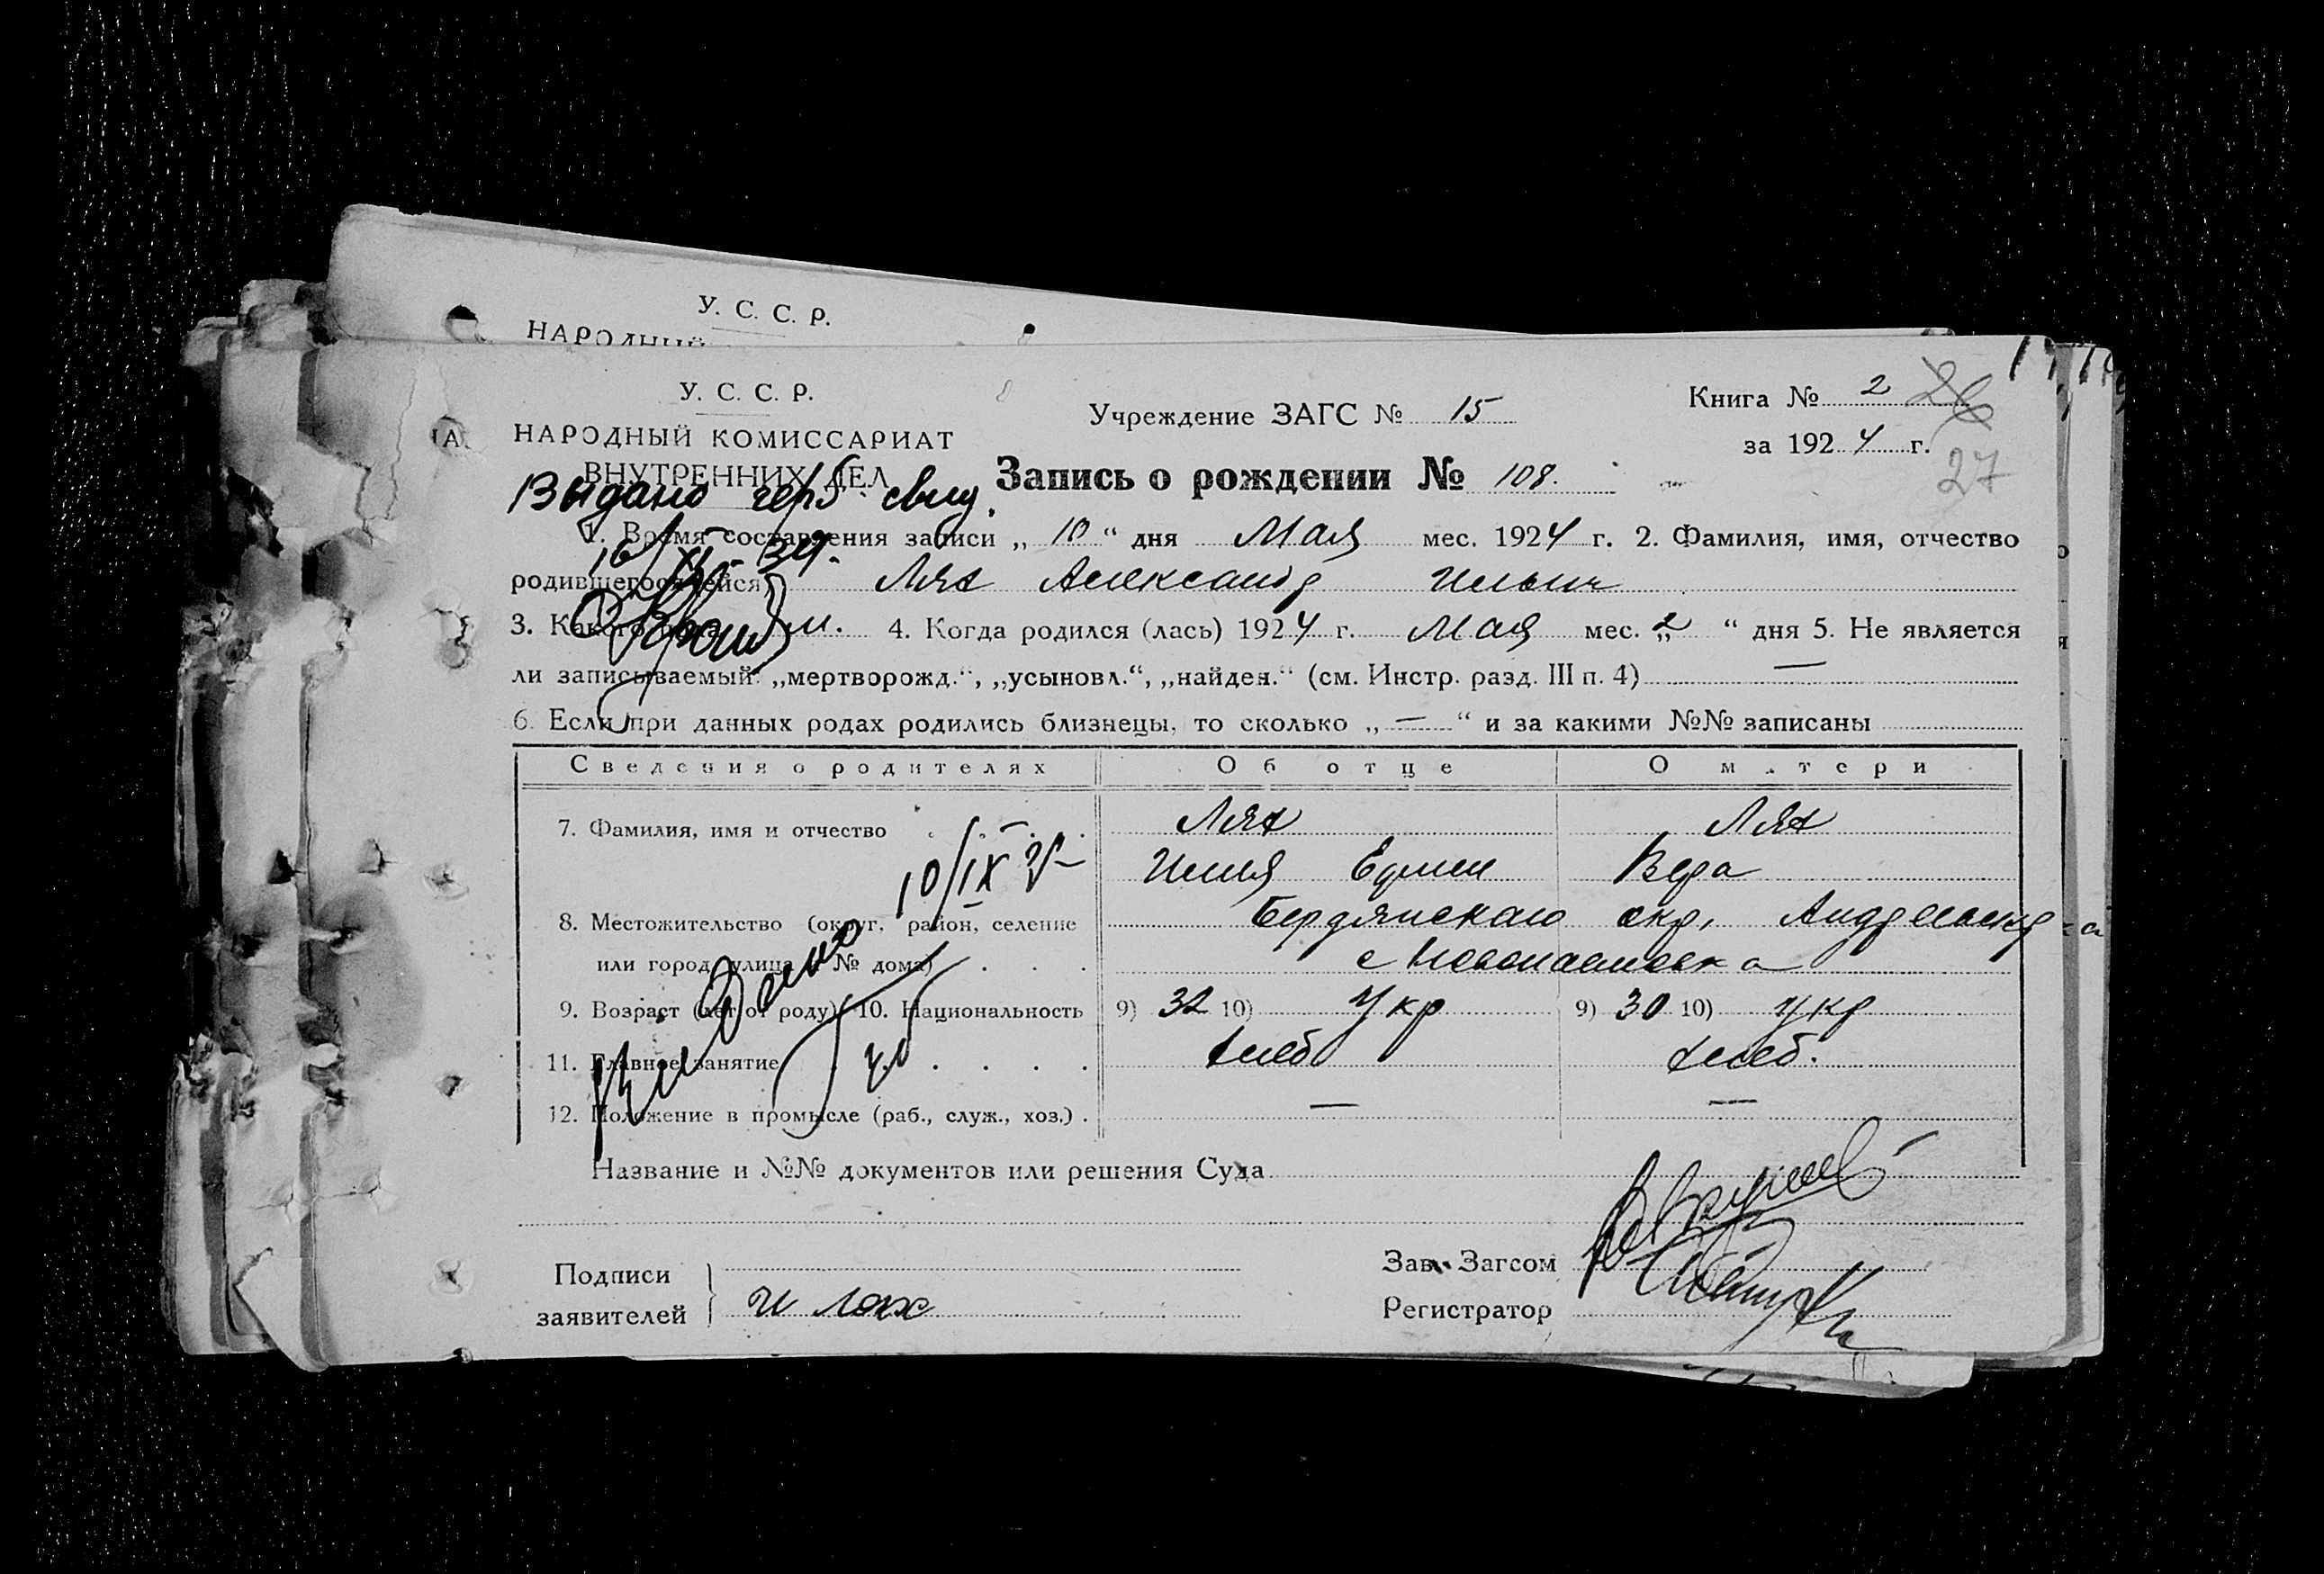 У. С. С. Р.
НАРОДНЫЙ
У. С. С. Р.
НАРОДНЫЙ КОМИССАРИАТ
ВНУТРЕННИХ ДЕЛ
Учреждение ЗАГС № 15
Книга № 2 26
за 1924 г.
27
Запись о рождении № 108.
Выдано герб. свид.
1. Время составления записи „ 10 “ дня Мая мес. 1924 г. 2. Фамилия, имя, отчество
родившегося(ейся) Лях Александр Ильич
3. Какого пола м. 4. Когда родился (лась) 1924 г. Мая мес. „ 2 “ дня 5. Не является
ли записываемый: „мертворожд.“, „усыновл.“, „найден.“ (см. Инстр. разд. III п. 4) —
6. Если при данных родах родились близнецы, то сколько „ — “ и за какими №№ записаны
Сведения о родителях Об отце О матери
7. Фамилия, имя и отчество Лях Лях
Илья Ефим Вера
10/IX
8. Местожительство (округ, район, селение Бердянского окр,
или город, улица и № дома) с Новопавловка
Выдано
9. Возраст (лет от роду) 10. Национальность 9) 32 10) Укр 9) 30 10) укр
11. Главное занятие хлеб хлеб.
12. Положение в промысле (раб., служ., хоз.) — —
Название и №№ документов или решения Суда
Подписи
заявителей И Лях
Зав. Загсом
Регистратор